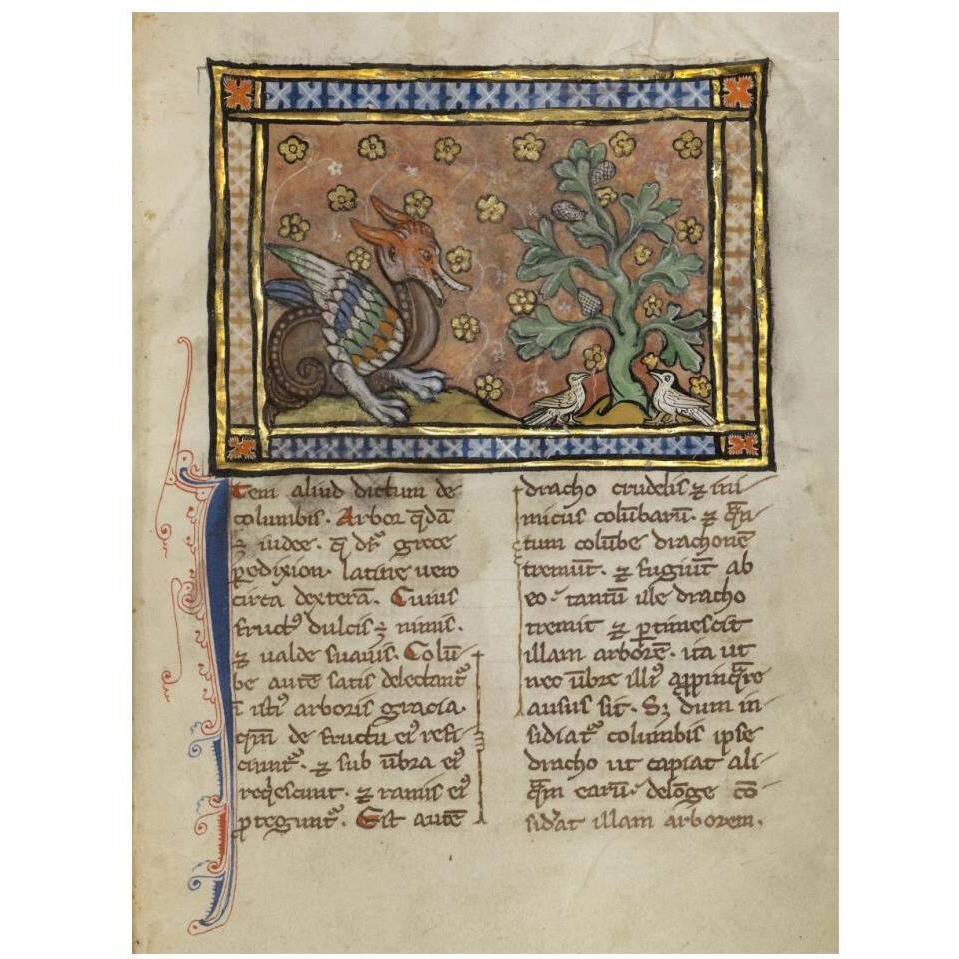 Item aliud dictum de
columbis. Arbor q̄dā
ī indee. q̄ dr̄ grece
ꝑedixion. latine uero
circa dexterā. Cuius
fructꝰ dulcis ē nimis.
⁊ ualde suauis. Colū
be autē satis delectantᷣ
ī istiꝰ arboris gracia.
qm̄ de fructu eiꝰ refi
ciuntᷣ. ⁊ sub ūbra eiꝰ
reqͥescunt. ⁊ ramis eiꝰ
ꝓteguntᷣ. Est autē
dracho crudelis ⁊ ini
micus colūbarū. ⁊ qͣn
tum colūbe drachonē
tremūt. ⁊ fugiūt ab
eo. tantū ille dracho
tremit ⁊ ꝑtimescit
illam arborē. ita ut
nec ūbre illiꝰ aꝓpinqͣre
ausus sit. Sꝫ dum in
sidiatᷣ columbis ipse
dracho ut capiat ali
qͣm earū. delōge cō
sid̓at illam arborem.